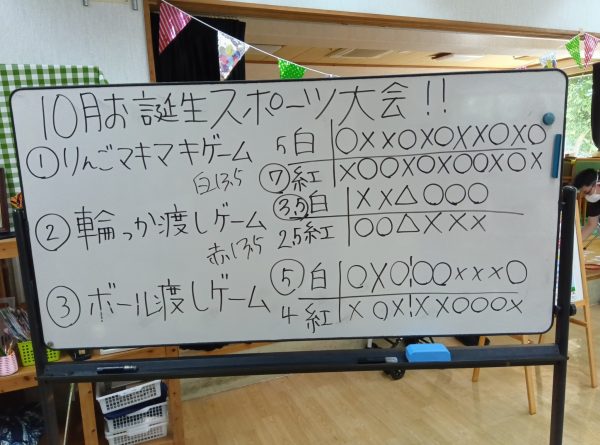 10月お誕生スポーツ大会!!
①りんごマキマキゲーム 5白 ○××○×○××○×○
白13.5 ⑦紅 ×○○×○×○○×○×
②輪っか渡しゲーム 3.5白 ××△○○○
赤13.5 2.5紅 ○○△×××
③ボール渡しゲーム ⑤白 ○×○¦○○×××○
4紅 ×○×¦××○○○×